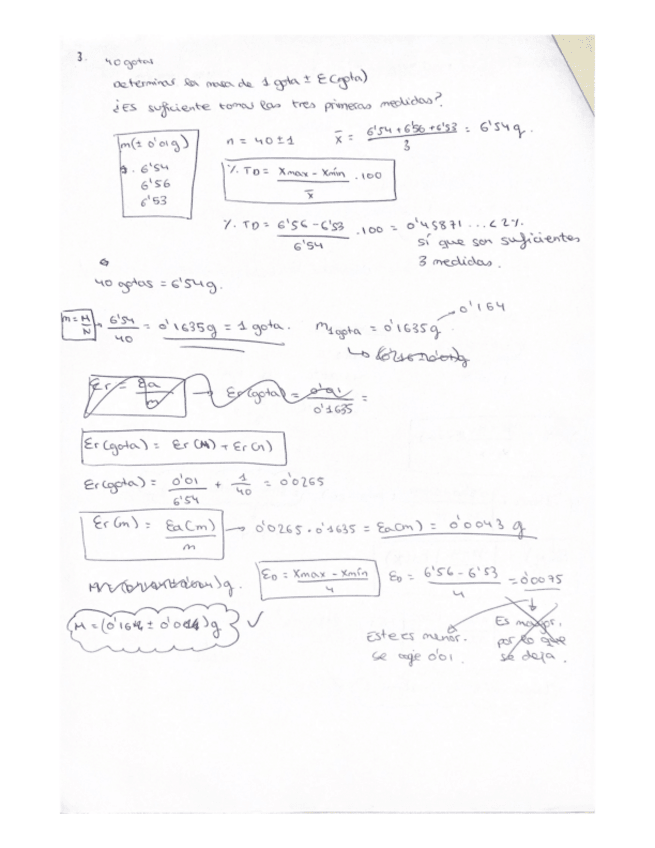 3. 40 gotas
Determinar la masa de 1 gota ± E(gota)
¿Es suficiente tomar las tres primeras medidas?
m(± 0'01g)
6'54
6'56
6'53
n = 40 ± 1
x̄ = (6'54 + 6'56 + 6'53)/3 = 6'54g.
% TD = (Xmax - Xmín)/x̄ . 100
% TD = (6'56 - 6'53)/6'54 . 100 = 0'45871 ... < 2%.
sí que son suficientes
3 medidas.
40 gotas = 6'54g.
m = M/N → 6'54/40 = 0'1635g = 1 gota.
m1gota = 0'1635g → 0'164
Er = Ea/m → Er(gota) = 0'01/0'1635 =
Er(gota) = Er(M) + Er(n)
Er(gota) = 0'01/6'54 + 1/40 = 0'0265
Er(m) = Ea(m)/m → 0'0265 · 0'1635 = Ea(m) = 0'0043 g
ED = (Xmax - Xmín)/4
ED = (6'56 - 6'53)/4 = 0'0075
M = (0'164 ± 0'004)g ✓
Este es menor.
se coge 0'01.
Es mayor,
por lo que
se deja.